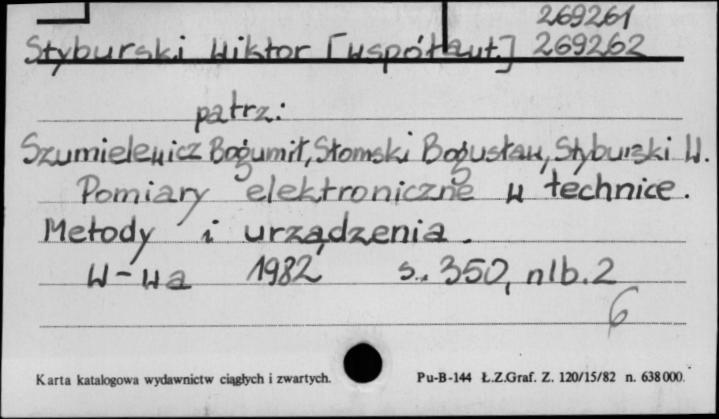 269261
Styburski Wiktor [współaut.] 269262
patrz:
Szumielewicz Bogumił, Słomski Bogusław, Styburski W.
Pomiary elektroniczne w technice.
Metody i urządzenia.
W-wa 1982 s. 350, nlb. 2
6
Karta katalogowa wydawnictw ciągłych i zwartych. Pu-B-144 Ł.Z.Graf. Z. 120/15/82 n. 638 000.